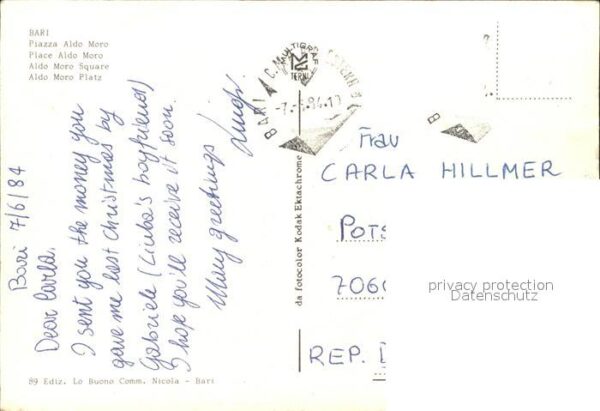 BARI
Piazza Aldo Moro
Place Aldo Moro
Aldo Moro Square
Aldo Moro Platz
Bari 7/6/84
Dear Carla,
I sent you the money you
gave me last Christmas by
Gabriele (Liuba's boyfriend)
I hope you'll receive it soon.
Many greetings
89 Ediz. Lo Buono Comm. Nicola - Bari
da fotocolor Kodak Ektachrome
MULTIGRAF
TERNI
BARI A.C.
-7.-6.84.19
B
Frau
CARLA HILLMER
POTS
706
REP. D
privacy protection
Datenschutz